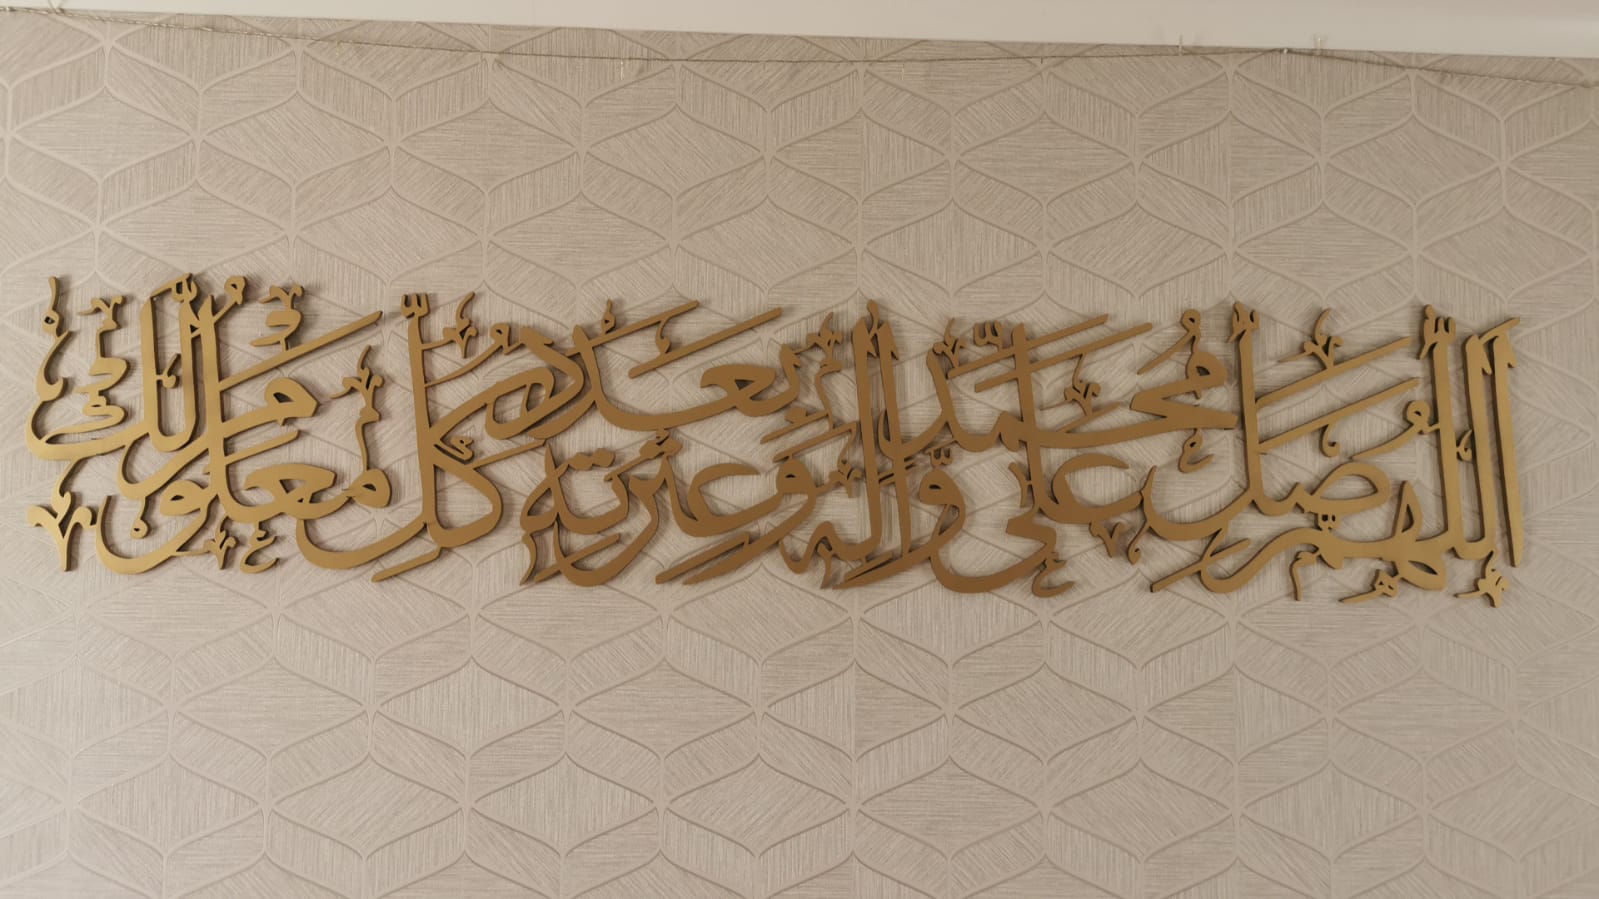 اللَّهُمَّ صَلِّ عَلَى مُحَمَّدٍ وَّاٰلِهٖ وَعِتْرَتِهٖ بِعَدَدِ كُلِّ مَعْلُوْمٍ لَّكَ